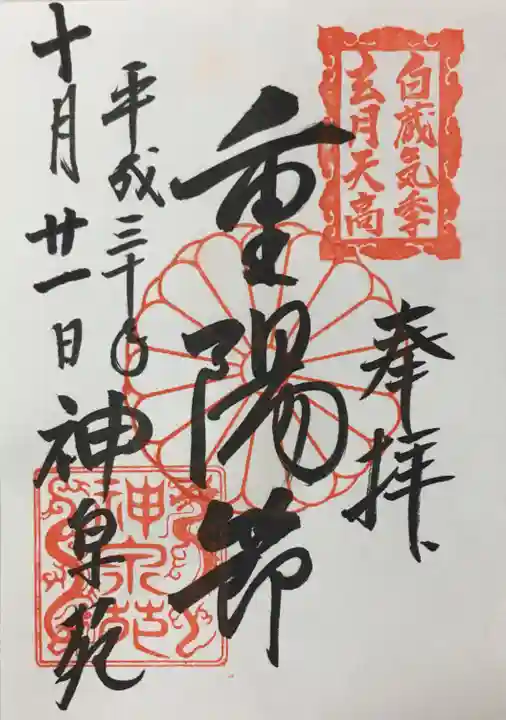 白蔵気季
玄月天高
奉拝
重陽節
平成三十年
十月廿一日
神泉苑
神泉苑